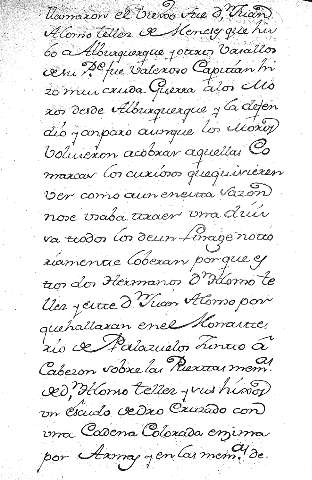 llamaron el tuerto fue dⁿ Juan
Alonso tellez de Meneses que hu
bo a Alburquerque y otros Vasallos
de su Pᵉ fue Valeroso Capitan hi
zo mui cruda Guerra a los Mo
ros desde Alburquerque y la defen
dio y amparo aunque los Moros
Volvieron a cobrar aquellas Co
marcas los curiosos que quisieren
ver como aun en esta sazon
no se usaba traer una divi
sa todos los de un Linage noto
riamente lo veran por que es
tos dos Hermanos dⁿ Alonso te
llez y este dⁿ Juan Alonso por
que hallaran en el Monaste
rio de Palazuelos Junto a
Cabezon sobre las Puertas mem.ᵃˢ
de dⁿ Alonso tellez y sus hijos
un escudo de oro Cruzado con
una Cadena Colorada enzima
por Armas y en las mem.ᵃˢ de